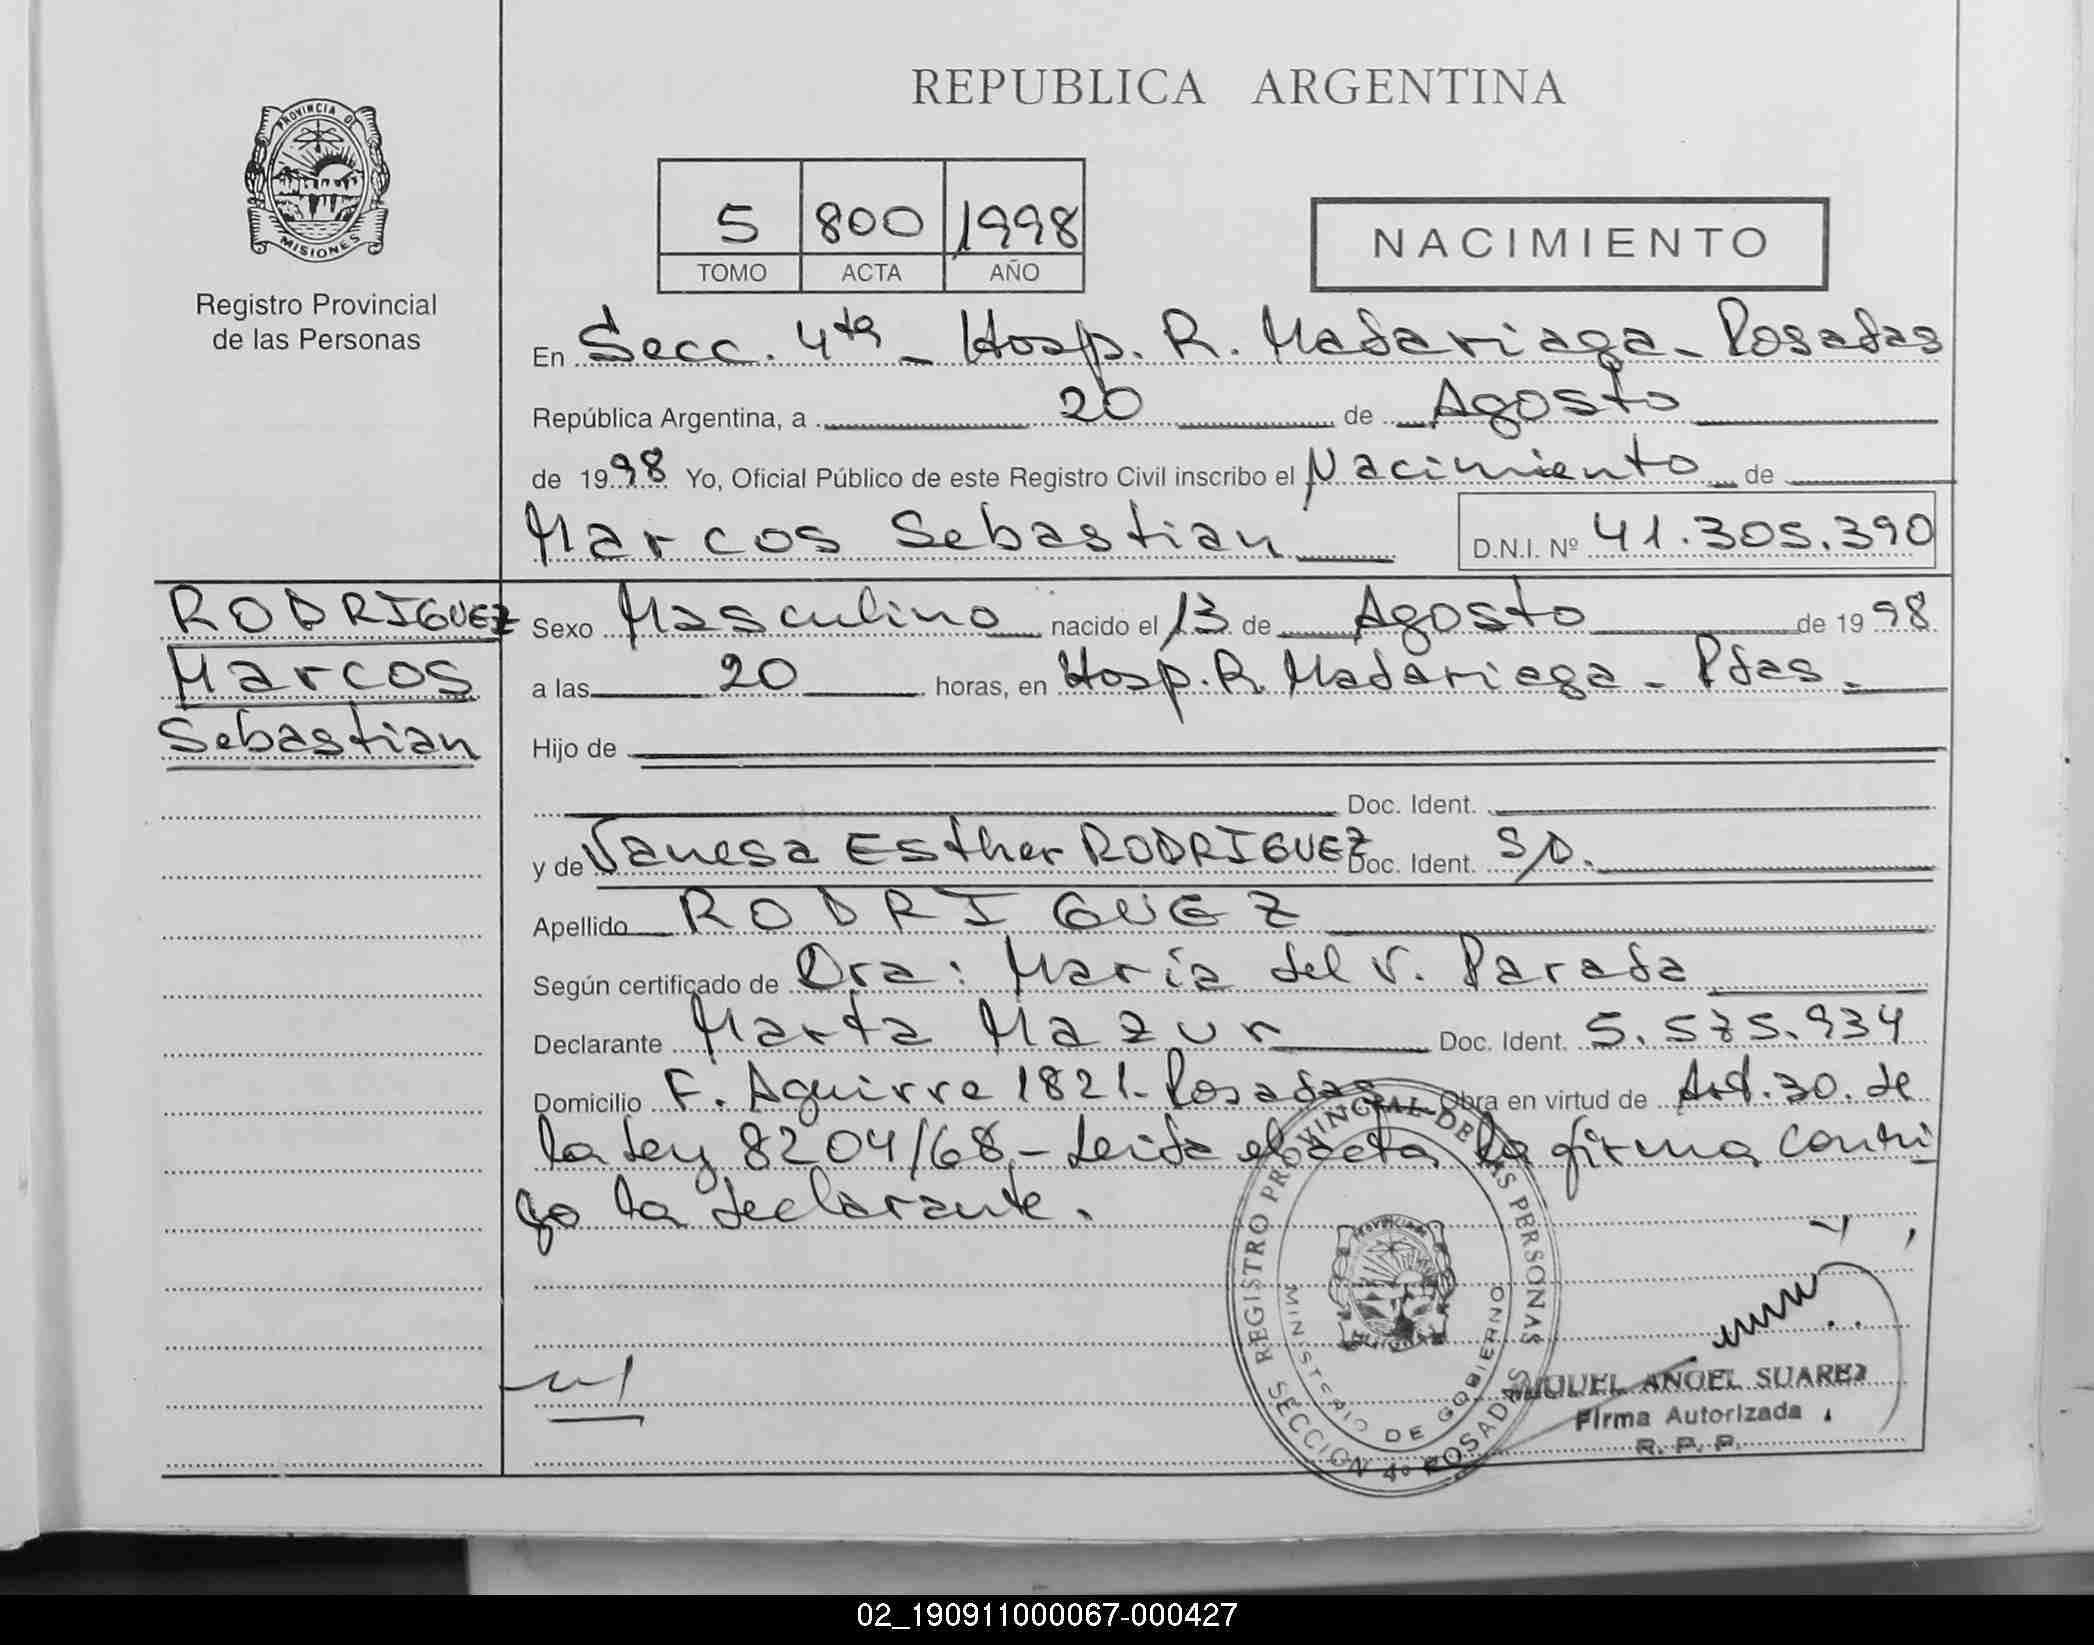 REPUBLICA ARGENTINA
PROVINCIA DE
MISIONES
Registro Provincial
de las Personas
5 800 1998
TOMO ACTA AÑO
NACIMIENTO
En Secc. 4ta - Hosp. R. Madariaga - Posadas
República Argentina, a 20 de Agosto
de 1998 Yo, Oficial Público de este Registro Civil inscribo el Nacimiento de
Marcos Sebastian D.N.I. Nº 41.305.390
RODRIGUEZ
Marcos
Sebastian
Sexo Masculino nacido el 13 de Agosto de 1998
a las 20 horas, en Hosp. R. Madariaga - Pdas.
Hijo de
Doc. Ident.
y de Vanesa Esther RODRIGUEZ Doc. Ident. S/D.
Apellido RODRIGUEZ
Según certificado de Dra: Maria del V. Parada
Declarante Marta Mazur Doc. Ident. 5.575.934
Domicilio F. Aguirre 1821- Posadas Obra en virtud de Art. 30. de
la Ley 8204/68 - Leida el acta la firma conmi
go la declarante.
REGISTRO PROVINCIAL DE LAS PERSONAS
MINISTERIO DE GOBIERNO
SECCION 4º POSADAS
MIGUEL ANGEL SUAREZ
Firma Autorizada
R. P. P.
02_190911000067-000427